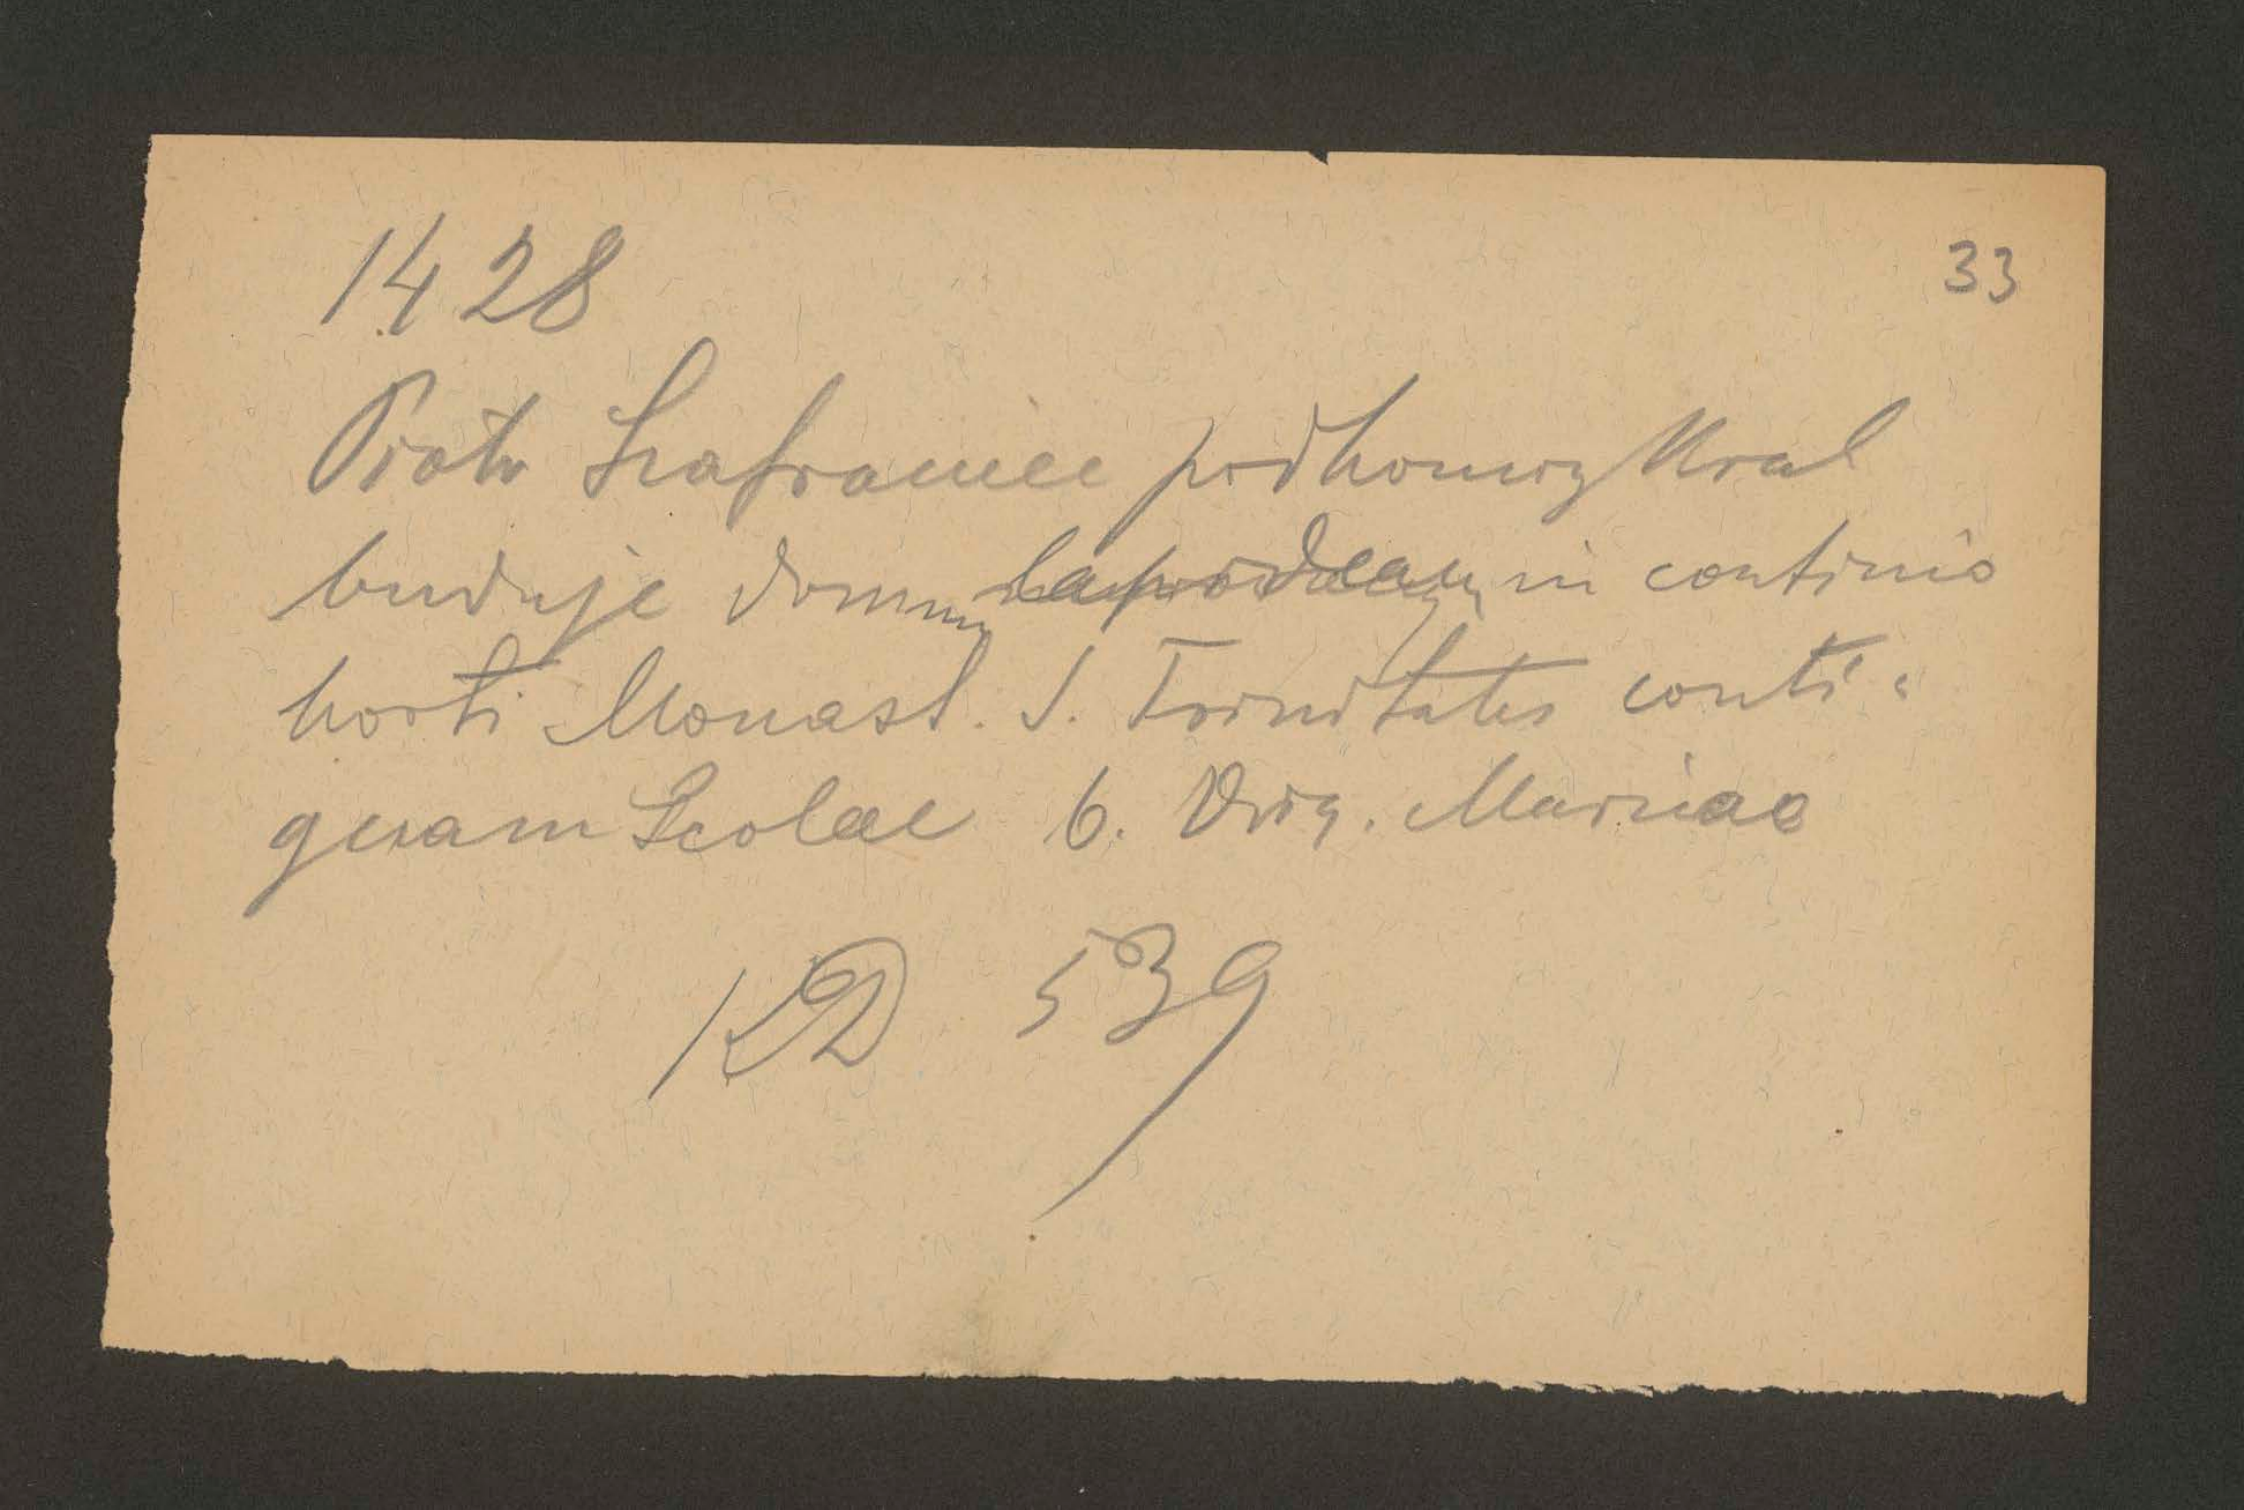 1428
33
Piotr Szafraniec podkomorzy Krak
buduje domum lapideam in confinio
horti Monast. S. Trinitatis conti-
guam Scolae b. Virg. Mariae
539